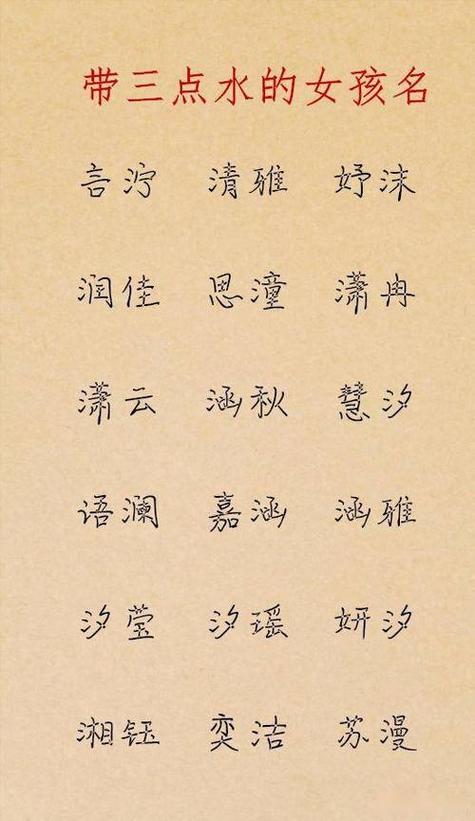 带三点水的女孩名
言泞 清雅 妤沫
润佳 思潼 潇冉
潇云 涵秋 慧汐
语澜 嘉涵 涵雅
汐莹 汐瑶 妍汐
湘钰 奕洁 苏漫